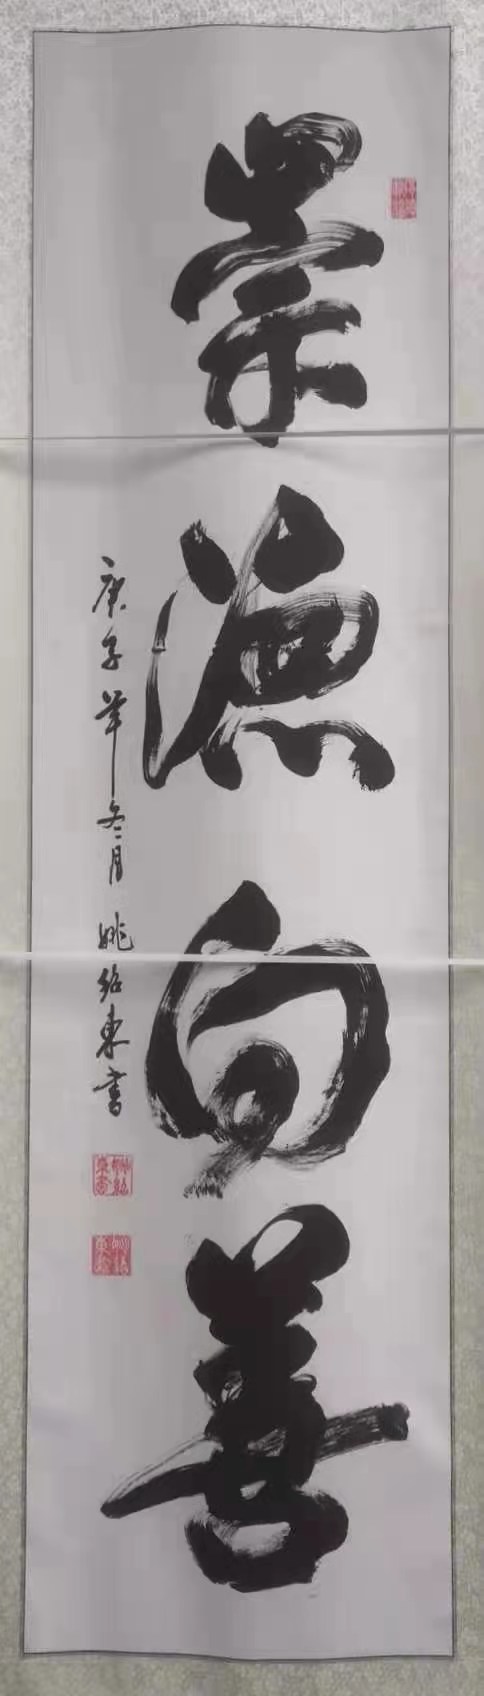 崇德向善
庚子年冬月 姚绍東書